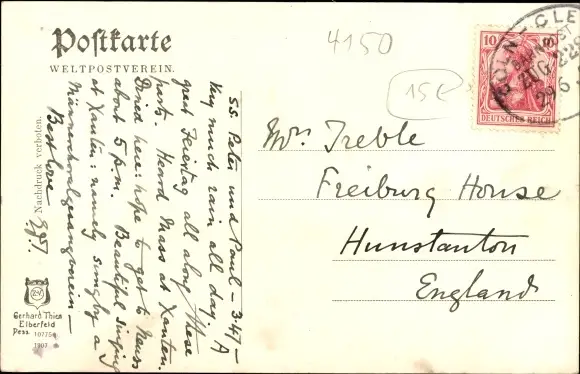 Postkarte
WELTPOSTVEREIN.
4150
15€
10
DEUTSCHES REICH
CÖLN – CLE
BAHNPOST
ZUG 228
29 6
Mrs. Treble
Freiburg House
Hunstanton
England
S.S. Peter und Paul – 3.47 –
Very much rain all day. A
great Feiertag all along these
parts. Heard Mass at Xanten.
Dined here: hope to get to
about 5 p.m. Beautiful singing
at Xanten: namely sung by a
Männerchoralgesangverein –
Best love
Nachdruck verboten.
Gerhard Thien
Elberfeld
Pess. 10775
1907